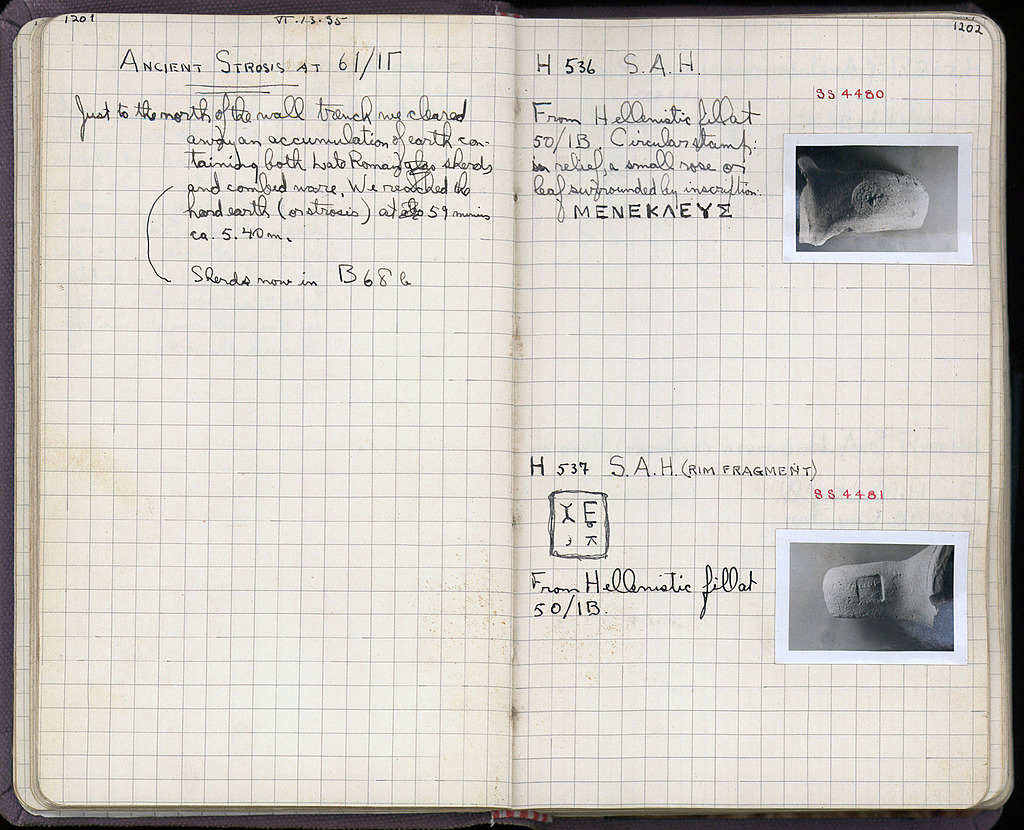 1201
VI.13.35
ANCIENT STROSIS AT 61/ΙΓ
Just to the north of the wall trench we cleared
away an accumulation of earth con-
taining both Late Roman sherds
and combed ware. We reached the
hard earth (or strosis) at 59 minus
ca. 5.40 m.
Sherds now in B 68
1202
H 536 S.A.H.
SS 4480
From Hellenistic fill at
50/ΙΒ. Circular stamp:
in relief, a small rose or
leaf surrounded by inscription:
ΜΕΝΕΚΛΕΥΣ
H 537 S.A.H. (RIM FRAGMENT)
SS 4481
From Hellenistic fill at
50/ΙΒ.